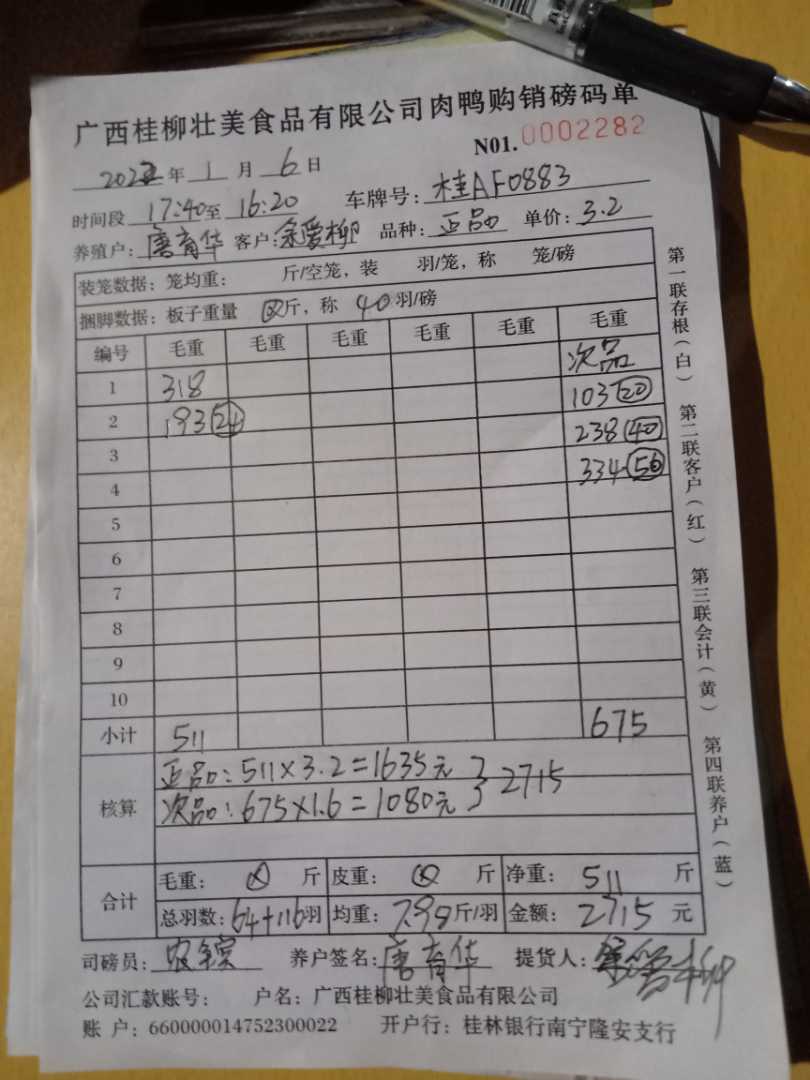 广西桂柳壮美食品有限公司肉鸭购销磅码单
N01.0002282
2022年 1 月 6 日
时间段 17:40至 16:20 车牌号: 桂AF0883
养殖户: 唐育华 客户: 余爱柳 品种: 正品 单价: 3.2
装笼数据: 笼均重: 斤/空笼, 装 羽/笼, 称 笼/磅
捆脚数据: 板子重量 斤, 称 40 羽/磅
编号 毛重 毛重 毛重 毛重 毛重 毛重
1 318 次品
2 193 24 103 20
3 238 40
4 334 56
5
6
7
8
9
10
小计 511 675
核算 正品: 511×3.2=1635元 } 2715
次品: 675×1.6=1080元
合计 毛重: 斤 皮重: 斤 净重: 511 斤
总羽数: 64+116羽 均重: 7.99斤/羽 金额: 2715 元
司磅员: 养户签名: 唐育华 提货人:
公司汇款账号: 户名: 广西桂柳壮美食品有限公司
账 户: 660000014752300022 开户行: 桂林银行南宁隆安支行
第一联存根(白) 第二联客户(红) 第三联会计(黄) 第四联养户(蓝)